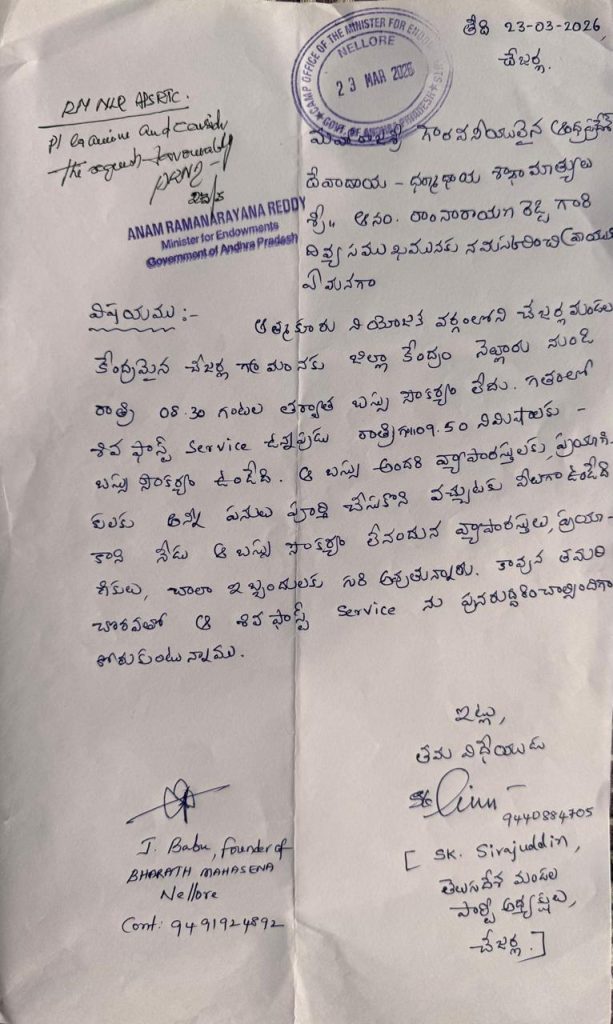 తేది 23-03-2026,
చేజర్ల.
CAMP OFFICE OF THE MINISTER FOR
NELLORE
23 MAR 2026
GOVT. OF ANDHRA PRADESH
RM NLR APSRTC.
Pl examine and consider
the request favourably
ANAM RAMANARAYANA REDDY
Minister for Endowments
Government of Andhra Pradesh
మహారాజశ్రీ గౌరవనీయులైన ఆంధ్రప్రదేశ్
దేవాదాయ - ధర్మాదాయ శాఖామాత్యులు
శ్రీ,, ఆనం. రాంనారాయణ రెడ్డి గారి
దివ్య సముఖమునకు నమస్కరించి వ్రాయు
ఏమనగా
విషయము :-
ఆత్మకూరు నియోజక వర్గంలోని చేజర్ల మండల
కేంద్రమైన చేజర్ల గ్రామానకు జిల్లా కేంద్రం నెల్లూరు నుండి
రాత్రి 08.30 గంటల తర్వాత బస్సు సౌకర్యం లేదు. గతంలో
శివ ఫాస్ట్ Service ఉన్నపుడు రాత్రి గం॥09.50 నిమిషాలకు -
బస్సు సౌకర్యం ఉండేది. ఆ బస్సు అందరి వ్యాపారస్తులకు, ప్రయాణి-
కులకు అన్ని పనులు పూర్తి చేసుకొని వచ్చుటకు వీలుగా ఉండేది
కాని నేడు ఆ బస్సు సౌకర్యం లేనందున వ్యాపారస్తులు, ప్రయా-
ణికులు, చాలా ఇబ్బందులకు గురి అవుతున్నారు. కావున తమరి
చొరవతో ఆ శివ ఫాస్ట్ Service ను పునరుద్ధరించాల్సిందిగా
కోరుకుంటున్నాము.
ఇట్లు,
తమ విధేయుడు
9440884705
[ SK. Sirajuddin,
తెలుగుదేశ మండల
పార్టీ అధ్యక్షులు,
చేజర్ల. ]
J. Babu, Founder of
BHARATH MAHASENA
Nellore
Cont: 9491924892